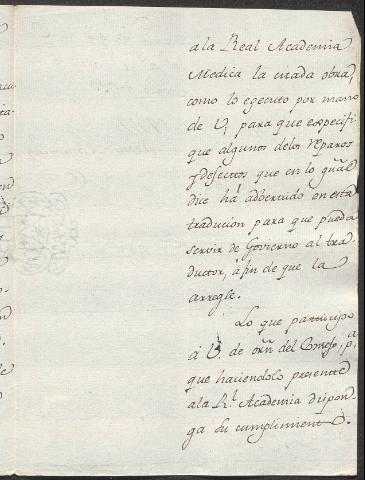 ala Real Academia
Medica la citada obra,
como lo egecuto por mano
de V, para que especifi-
que algunos delos reparos
y defectos que en lo gral
dice há adbertido en esta
tradución para que pueda
servir de Govierno al tra-
ductor, á fin de que la
arregle.
Lo que participo
á V. de orn del Consejo, pa
que haciendolo presente
ala Rl. Academia dispon-
ga su cumplimento.